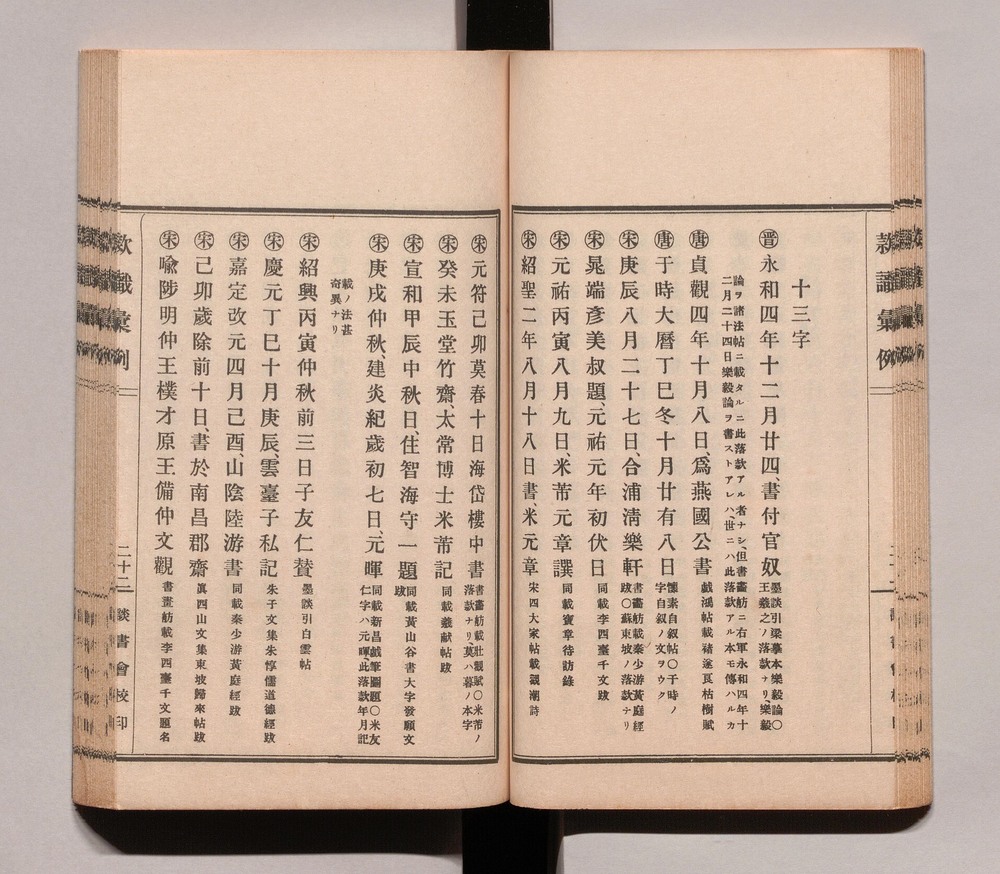 十三字
晋 永和四年十二月廿四、書付官奴 墨談引梁摹本樂毅論〇
王羲之ノ落款ナリ、樂毅
論ヲ諸法帖ニ載タルニ此落款アル者ナシ、但書畫舫ニ右軍永和四年十
二月二十四日樂毅論ヲ書ストアレハ、世ニハ此落款アル本モ傳ハルカ
唐 貞觀四年十月八日、爲燕國公書 戲鴻帖載褚遂良枯樹賦
唐 于時大曆丁巳冬十月廿有八日 懷素自叙帖〇于時ノ
字自叙ノ文ヲウク
宋 庚辰八月二十七日、合浦淸樂軒 書畫舫載秦少游黃庭經
跋〇蘇東坡ノ落款ナリ
宋 晁端彥美叔題、元祐元年初伏日 同載李四臺千文跋
宋 元祐丙寅八月九日、米芾元章譔 同載寶章待訪錄
宋 紹聖二年八月十八日書、米元章 宋四大家帖載觀潮詩
宋 元符己卯莫春十日海岱樓中書 書畫舫載壯觀賦〇米芾ノ
落款ナリ、莫ハ暮ノ本字
宋 癸未玉堂竹齋、太常博士米芾記 同載羲獻帖跋
宋 宣和甲辰中秋日、住智海守一題 同載黃山谷書大字發願文
跋
宋 庚戌仲秋、建炎紀歲初七日、元暉 同載新昌戲筆圖題〇米友
仁字ハ元暉、此落款年月記
載ノ法甚
奇異ナリ
宋 紹興丙寅仲秋前三日子友仁贊 墨談引白雲帖
宋 慶元丁巳十月庚辰、雲臺子私記 朱子文集朱惇儒道德經跋
宋 嘉定改元四月己酉、山陰陸游書 同載秦少游黃庭經跋
宋 己卯歲除前十日、書於南昌郡齋 眞西山文集東坡歸來帖跋
宋 喩陟明仲王樸才原王備仲文觀 書畫舫載李四臺千文題名
款識彙例
二十二
談書會校印